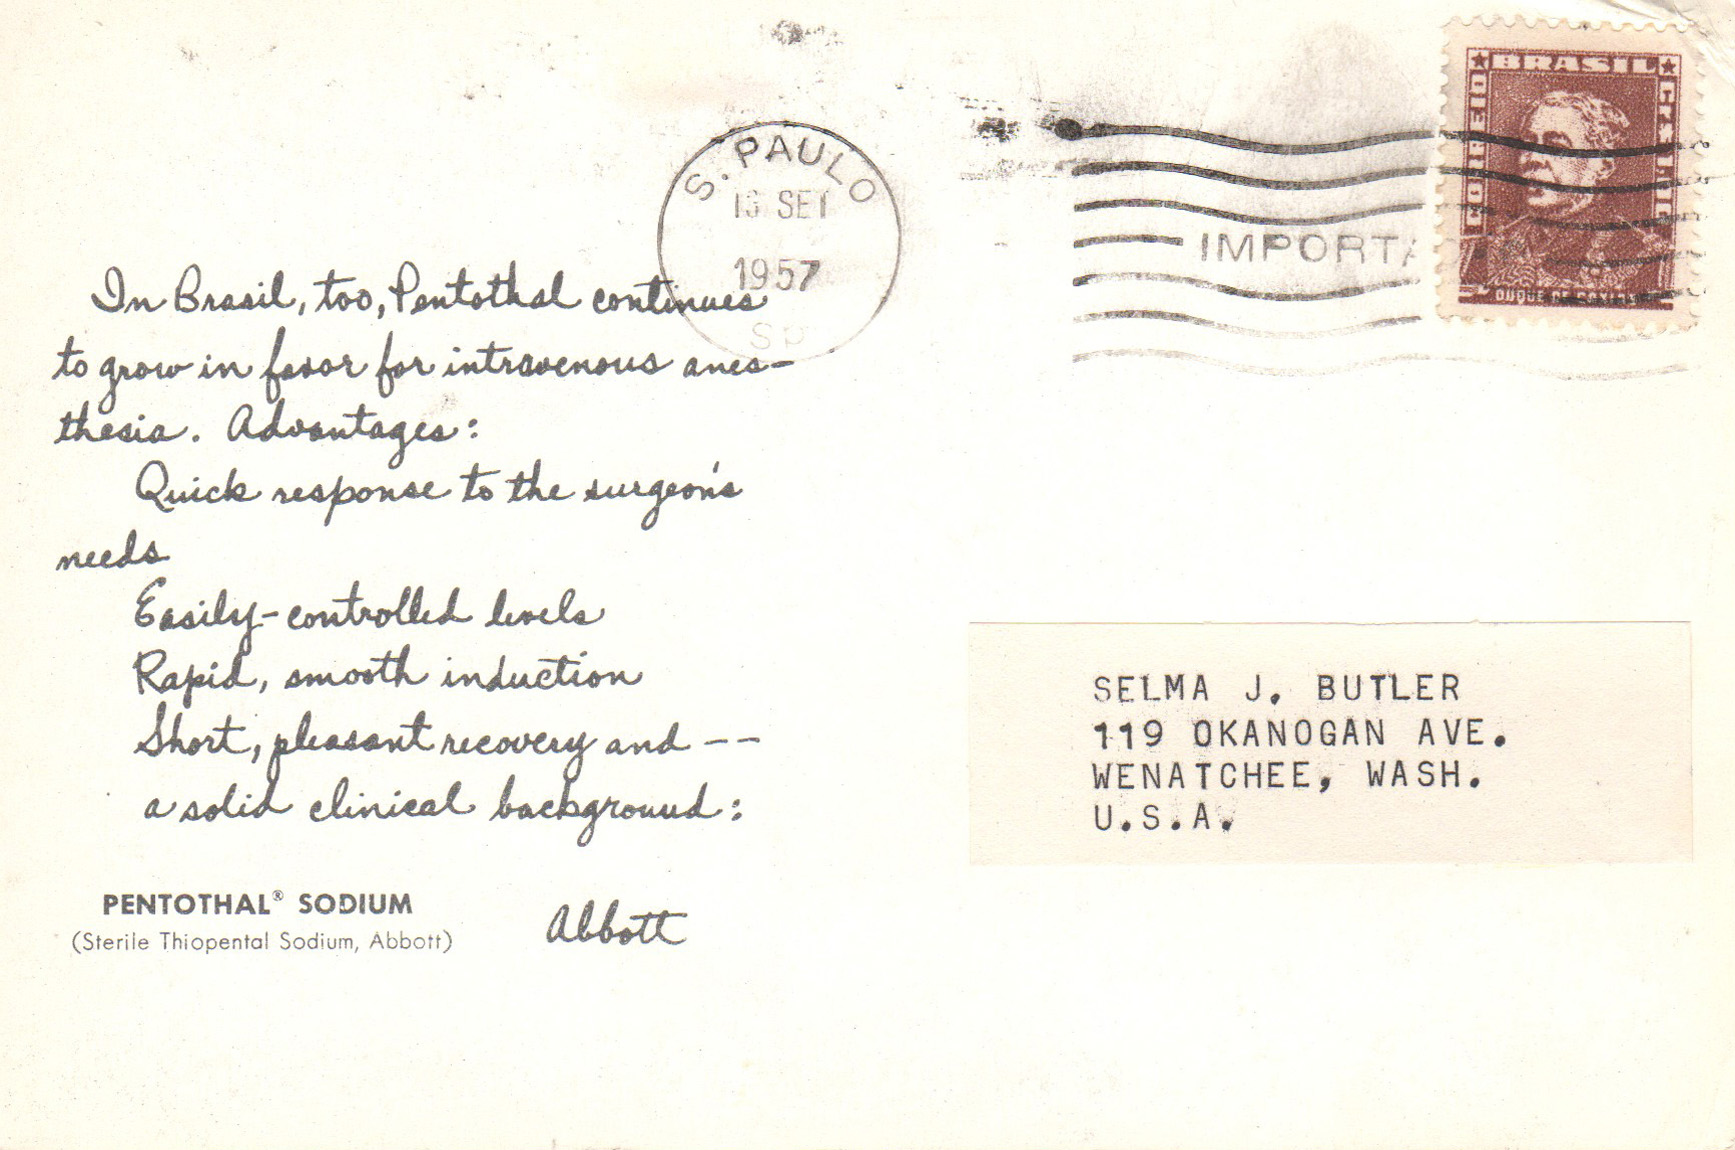 S. PAULO
SET
1957
SP
IMPORTA
BRASIL
CORREIO
In Brasil, too, Pentothal continues
to grow in favor for intravenous anes-
thesia. Advantages:
Quick response to the surgeon's
needs
Easily-controlled levels
Rapid, smooth induction
Short, pleasant recovery and --
a solid clinical background:
PENTOTHAL® SODIUM
(Sterile Thiopental Sodium, Abbott)
Abbott
SELMA J. BUTLER
119 OKANOGAN AVE.
WENATCHEE, WASH.
U.S.A.